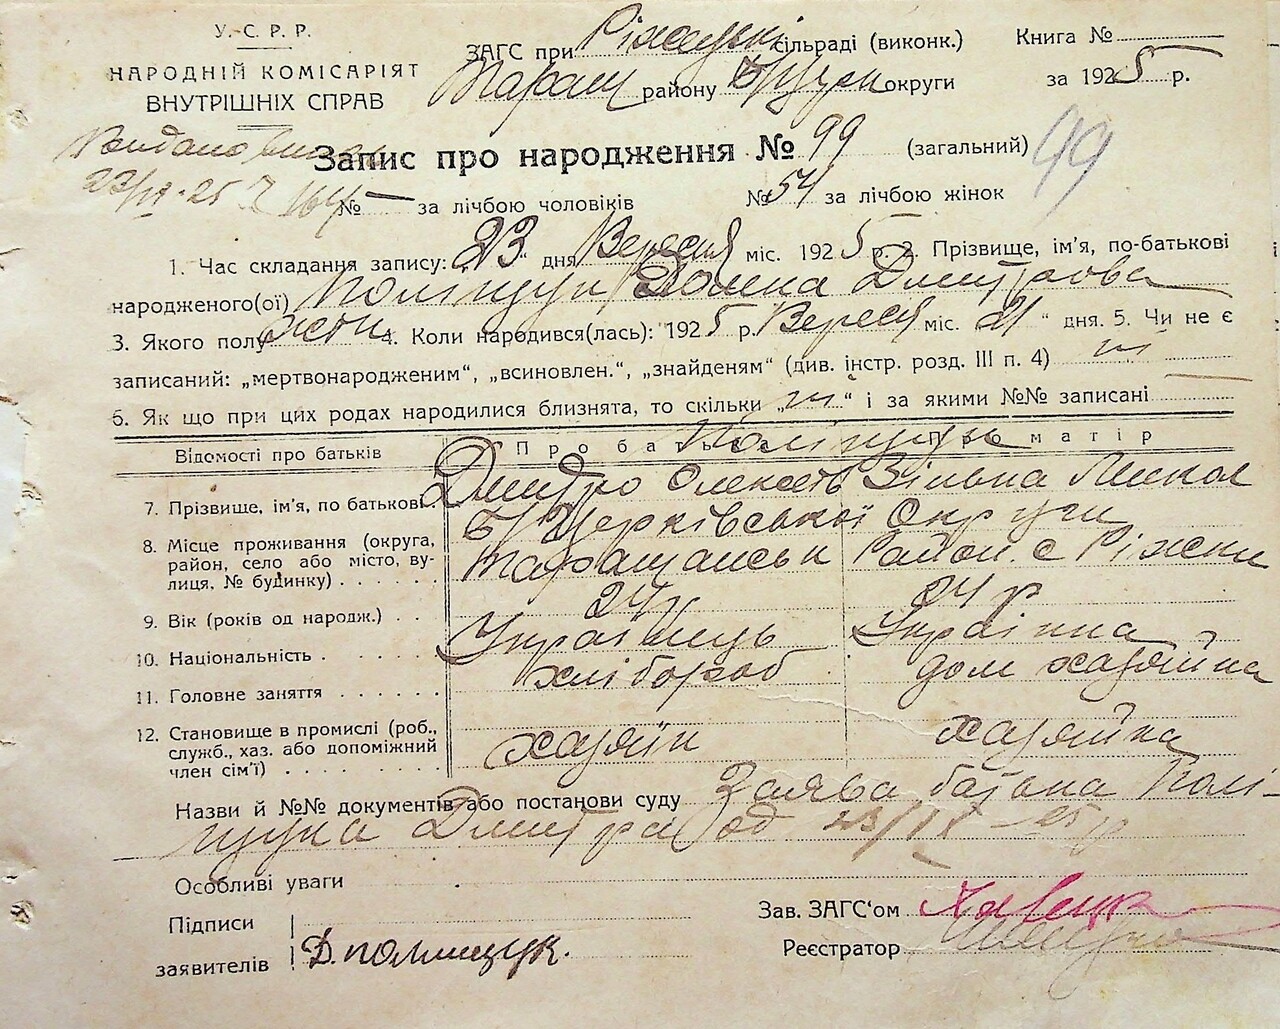 У.С.Р.Р.
НАРОДНІЙ КОМІСАРІЯТ
ВНУТРІШНІХ СПРАВ
ЗАГС при Ріжецькі сільраді (виконк.)
Таращ району Б/Церк округи
Книга №
за 1925 р.
Запис про народження № 99 (загальний) 99
№ — за лічбою чоловіків № 54 за лічбою жінок
1. Час складання запису: „23" дня Вересня міс. 1925 р. 2. Прізвище, ім'я, по-батькові
народженого(ої) Поліщук Домка Дмитрова
3. Якого полу жін 4. Коли народився(лась): 1925 р. Вересня міс. 21 " дня. 5. Чи не є
записаний: „мертвонародженим", „всиновлен.", „знайденям" (див. інстр. розд. III п. 4) ні
6. Як що при цих родах народилися близнята, то скільки „ ні " і за якими №№ записані
Відомості про батьків Про батька Про матір
Поліщук
7. Прізвище, ім'я, по батькові. Дмитро Олексів
8. Місце проживання (округа, район, село або місто, вулиця, № будинку) Б/Церківської Округи
Таращанськ Район. с Ріжки
9. Вік (років од народж.) 24 р 24 р
10. Національність Українець Українка
11. Головне заняття хлібороб дом хазяйка
12. Становище в промислі (роб., служб., хаз. або допоміжний член сім'ї) хазяїн хазяйка
Назви й №№ документів або постанови суду Заява батька Полі-
щука Дмитра од 23/IX-25 р
Особливі уваги
Підписи
заявителів Д. Полищук.
Зав. ЗАГС'ом
Реєстратор